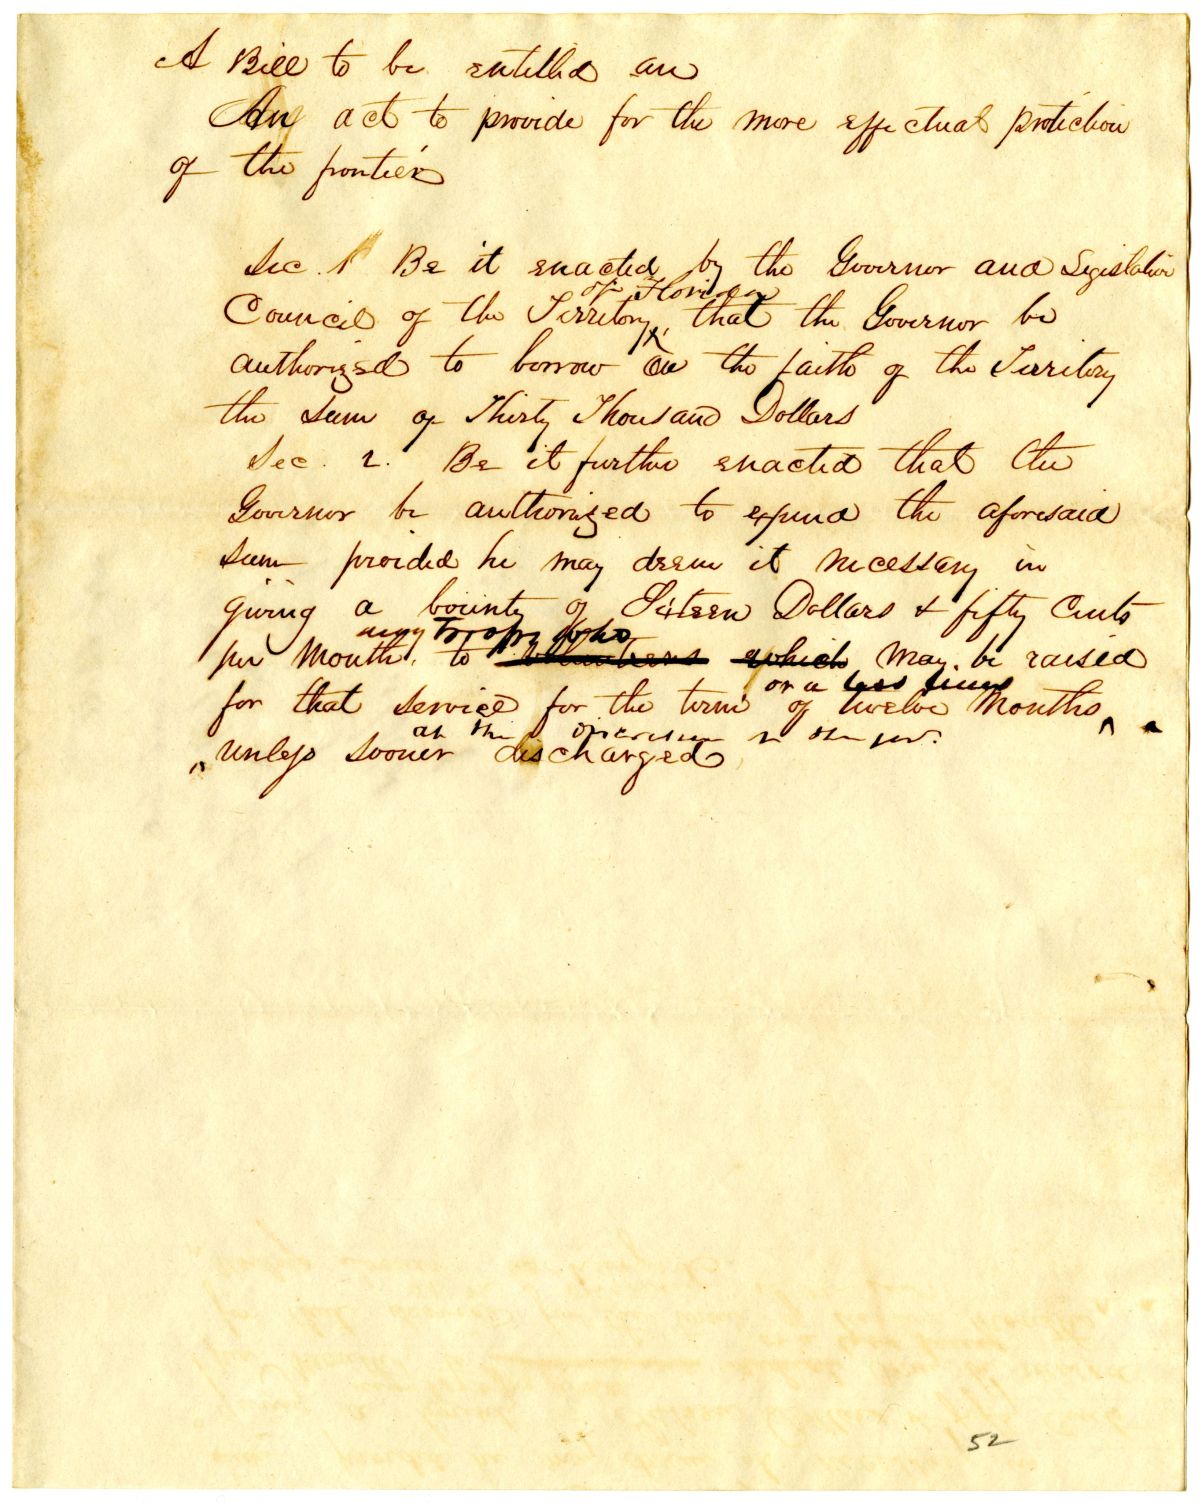 A Bill to be entitled an
An act to provide for the more effectual protection
of the frontier
Sec. 1 Be it enacted by the Governor and Legislative
of Florida
Council of the Territory, that the Governor be
authorized to borrow on the faith of the Territory
the sum of Thirty Thousand Dollars
Sec. 2. Be it further enacted that the
Governor be authorized to expend the aforesaid
sum proided he may deem it necessary in
giving a bounty of Sixteen Dollars & fifty Cents
any Troops who
per Month, to volunteers which may be raised
or a less time
for that service for the term of twelve Months
at the discretion of the Gov.
unless sooner discharged
52